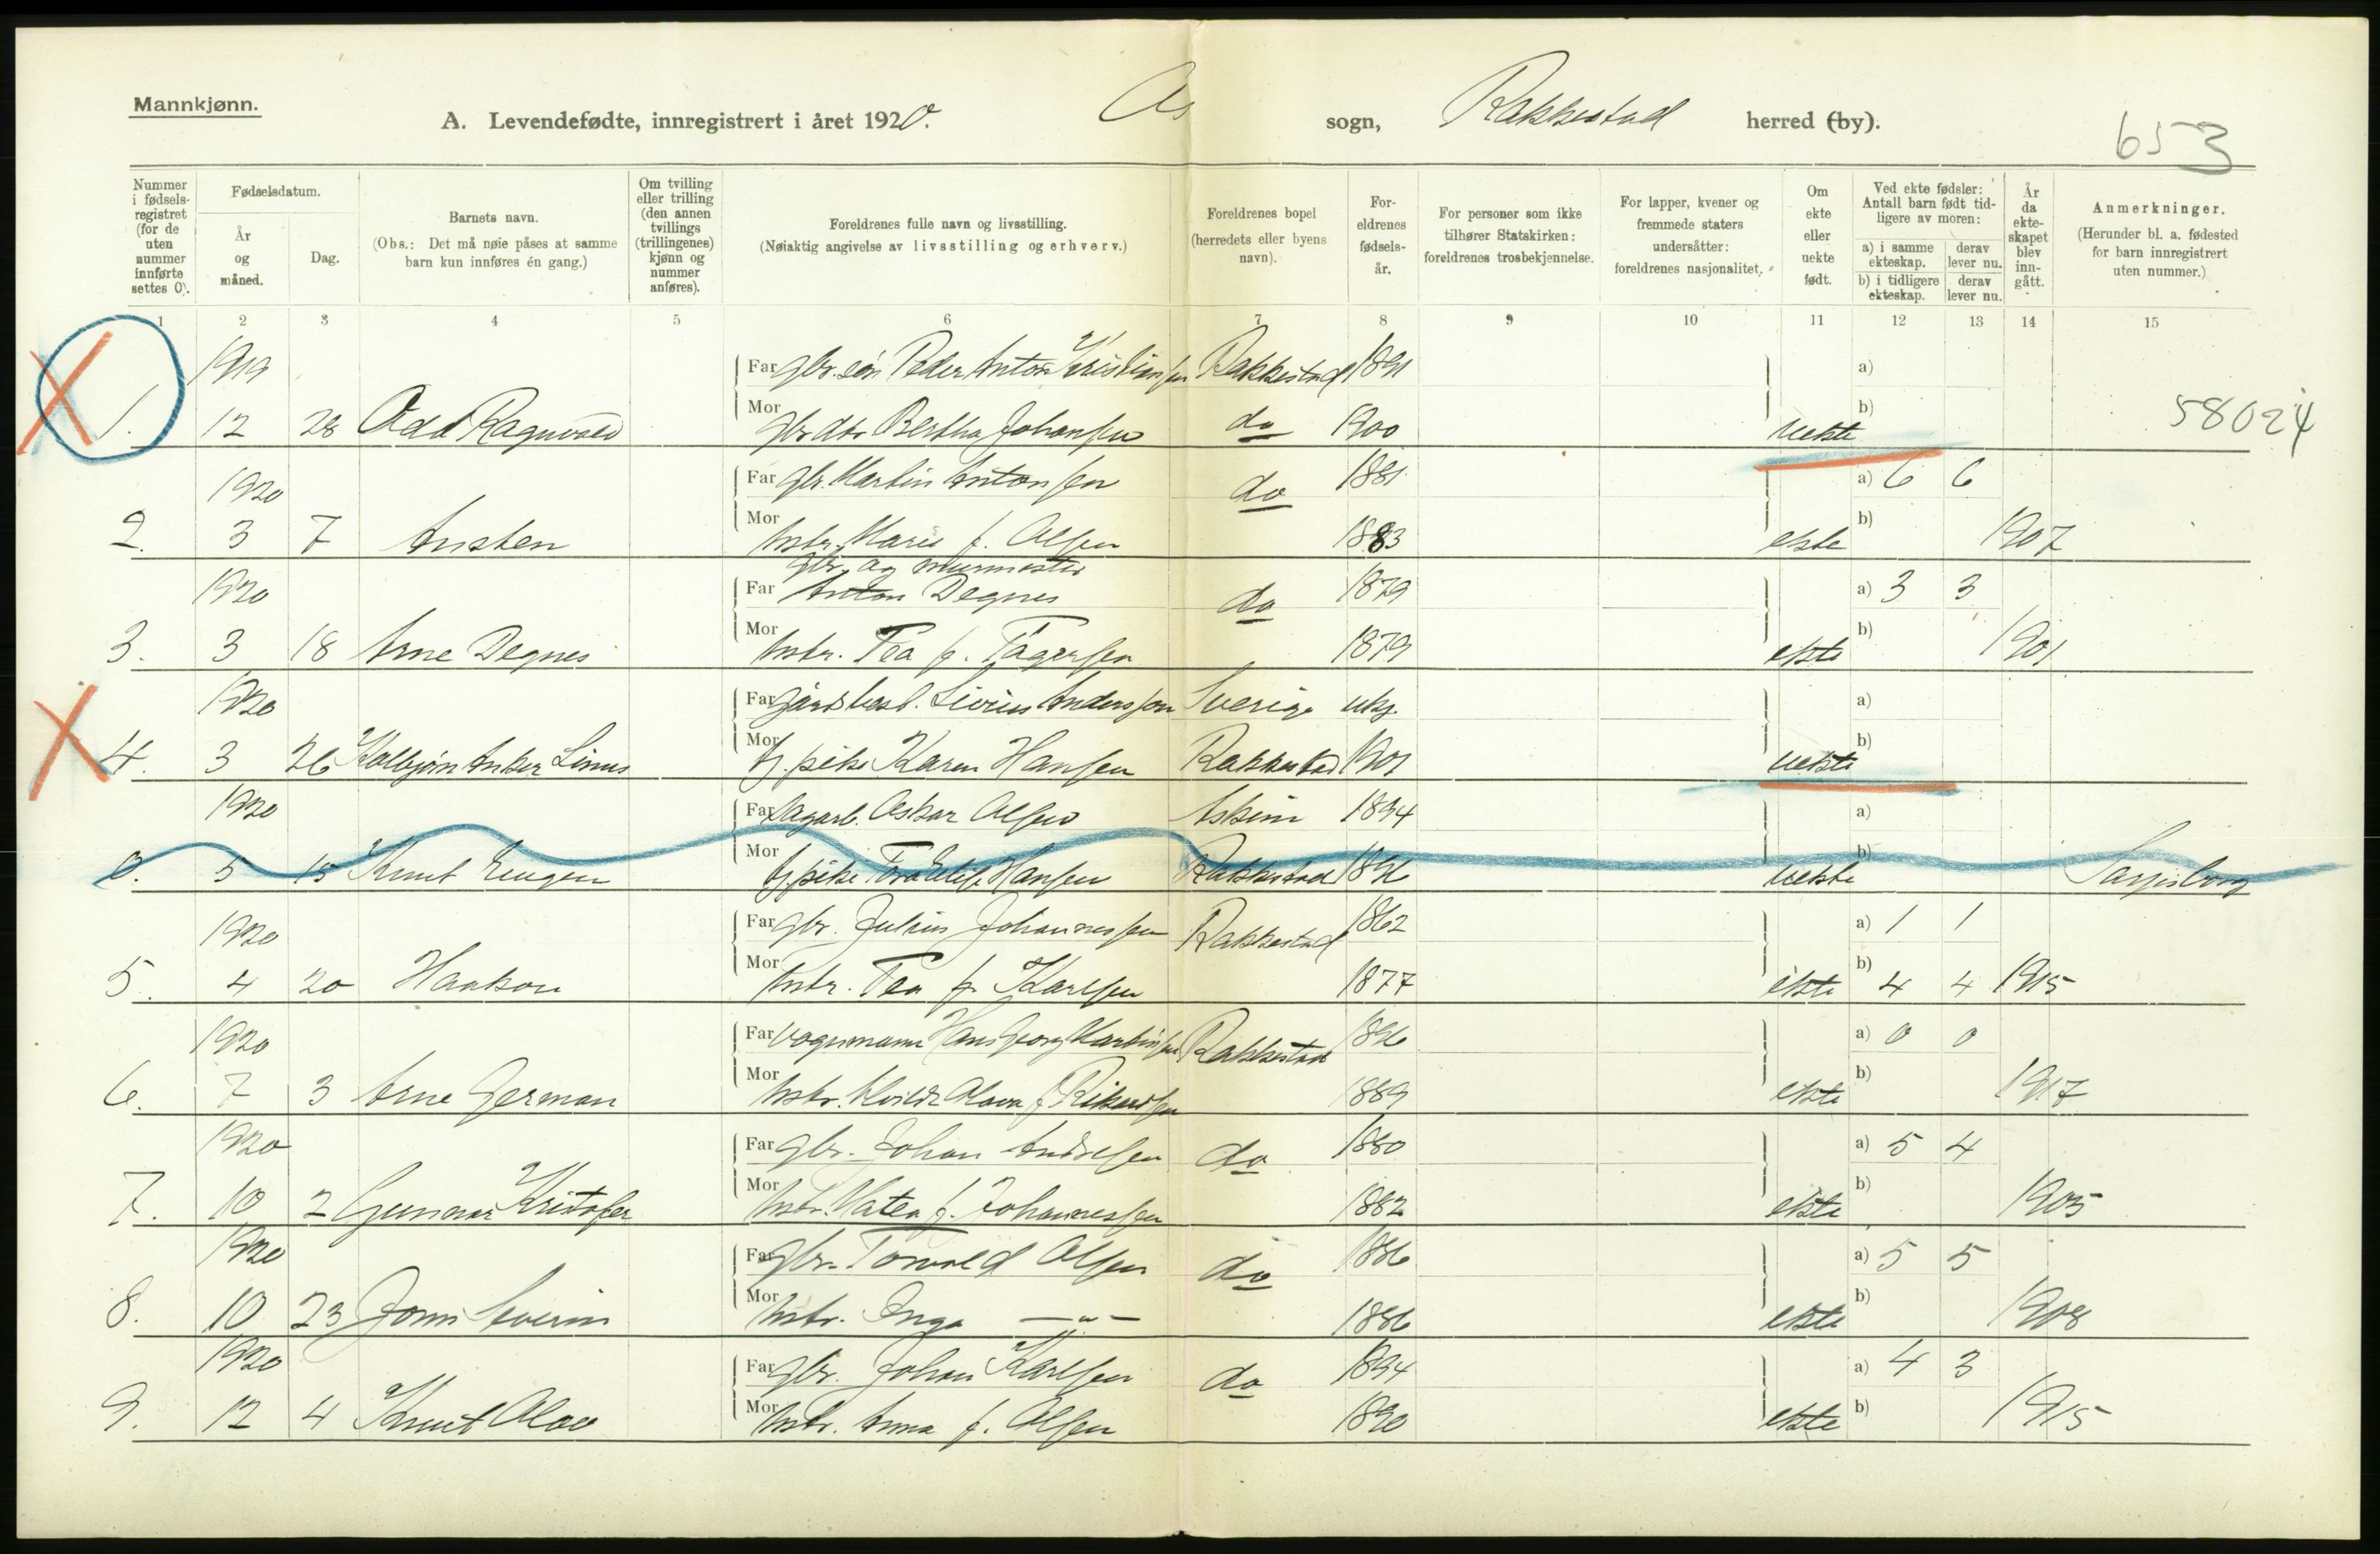 Mannkjønn.
A. Levendefødte, innregistrert i året 1920. Os sogn, Rakkestad herred (by).
653
Nummer i fødsels-registret (for de uten nummer innførte settes 0).
Fødselsdatum.
År og måned.
Dag.
Barnets navn.
(Obs.: Det må nøie påses at samme barn kun innføres én gang.)
Om tvilling eller trilling (den annen tvillings (trillingenes) kjønn og nummer anføres).
Foreldrenes fulle navn og livsstilling.
(Nøiaktig angivelse av livsstilling og erhverv.)
Foreldrenes bopel (herredets eller byens navn).
For-eldrenes fødsels-år.
For personer som ikke tilhører Statskirken: foreldrenes trosbekjennelse.
For lapper, kvener og fremmede staters undersåtter: foreldrenes nasjonalitet.
Om ekte eller uekte født.
Ved ekte fødsler: Antall barn født tid-ligere av moren:
a) i samme ekteskap. derav lever nu.
b) i tidligere ekteskap. derav lever nu.
År da ekte-skapet blev inn-gått.
Anmerkninger.
(Herunder bl. a. fødested for barn innregistrert uten nummer.)
1 2 3 4 5 6 7 8 9 10 11 12 13 14 15
1919 Far gbr. søn Peder Anton Kristiansen Rakkestad 1891 a)
1. 12 28 Odd Ragnvald Mor gbr dtr Bertha Johansen do 1900 uekte b) 58024
1920 Far gbr. Martin Antonsen do 1881 a) 6 6
2. 3 7 Austen Mor hstr. Marie f. Olsen 1883 ekte b) 1907
gbr. og murmester
1920 Far Anton Degnes do 1879 a) 3 3
3. 3 18 Arne Degnes Mor hstr. Tea f. Fagersen 1879 ekte b) 1901
1920 Far gårdbest. Livius Andersson Sverige ukj. a)
4. 3 26 Kolbjørn Anker Linus Mor tj. pike Karen Hansen Rakkestad 1901 uekte b)
1920 Far sagarb. Oskar Olsen Askim 1894 a)
0. 5 15 Knut Eugen Mor tj pike Hansen Rakkestad 1896 uekte b) Sarpsborg
1920 Far gbr. Julius Johannessen Rakkestad 1862 a) 1 1
5. 4 20 Haakon Mor hstr. Tea f. Karlsen 1877 ekte b) 4 4 1915
1920 Far vognmann Hans Georg Martinsen Rakkestad 1896 a) 0 0
6. 7 3 Arne German Mor hstr. Alvilde Olava f. Rikardsen 1889 ekte b) 1917
1920 Far gbr. Johan Andersen do 1880 a) 5 4
7. 10 2 Gunnar Kristofer Mor hstr. Matea f. Johannessen 1882 ekte b) 1905
1920 Far gbr. Torvald Olsen do 1886 a) 5 5
8. 10 23 Severin Mor hstr. Inga —"— 1886 ekte b) 1908
1920 Far gbr. Johan Karlsen do 1894 a) 4 3
9. 12 4 Knut Olav Mor hstr. Anna f. Olsen 1890 ekte b) 1915